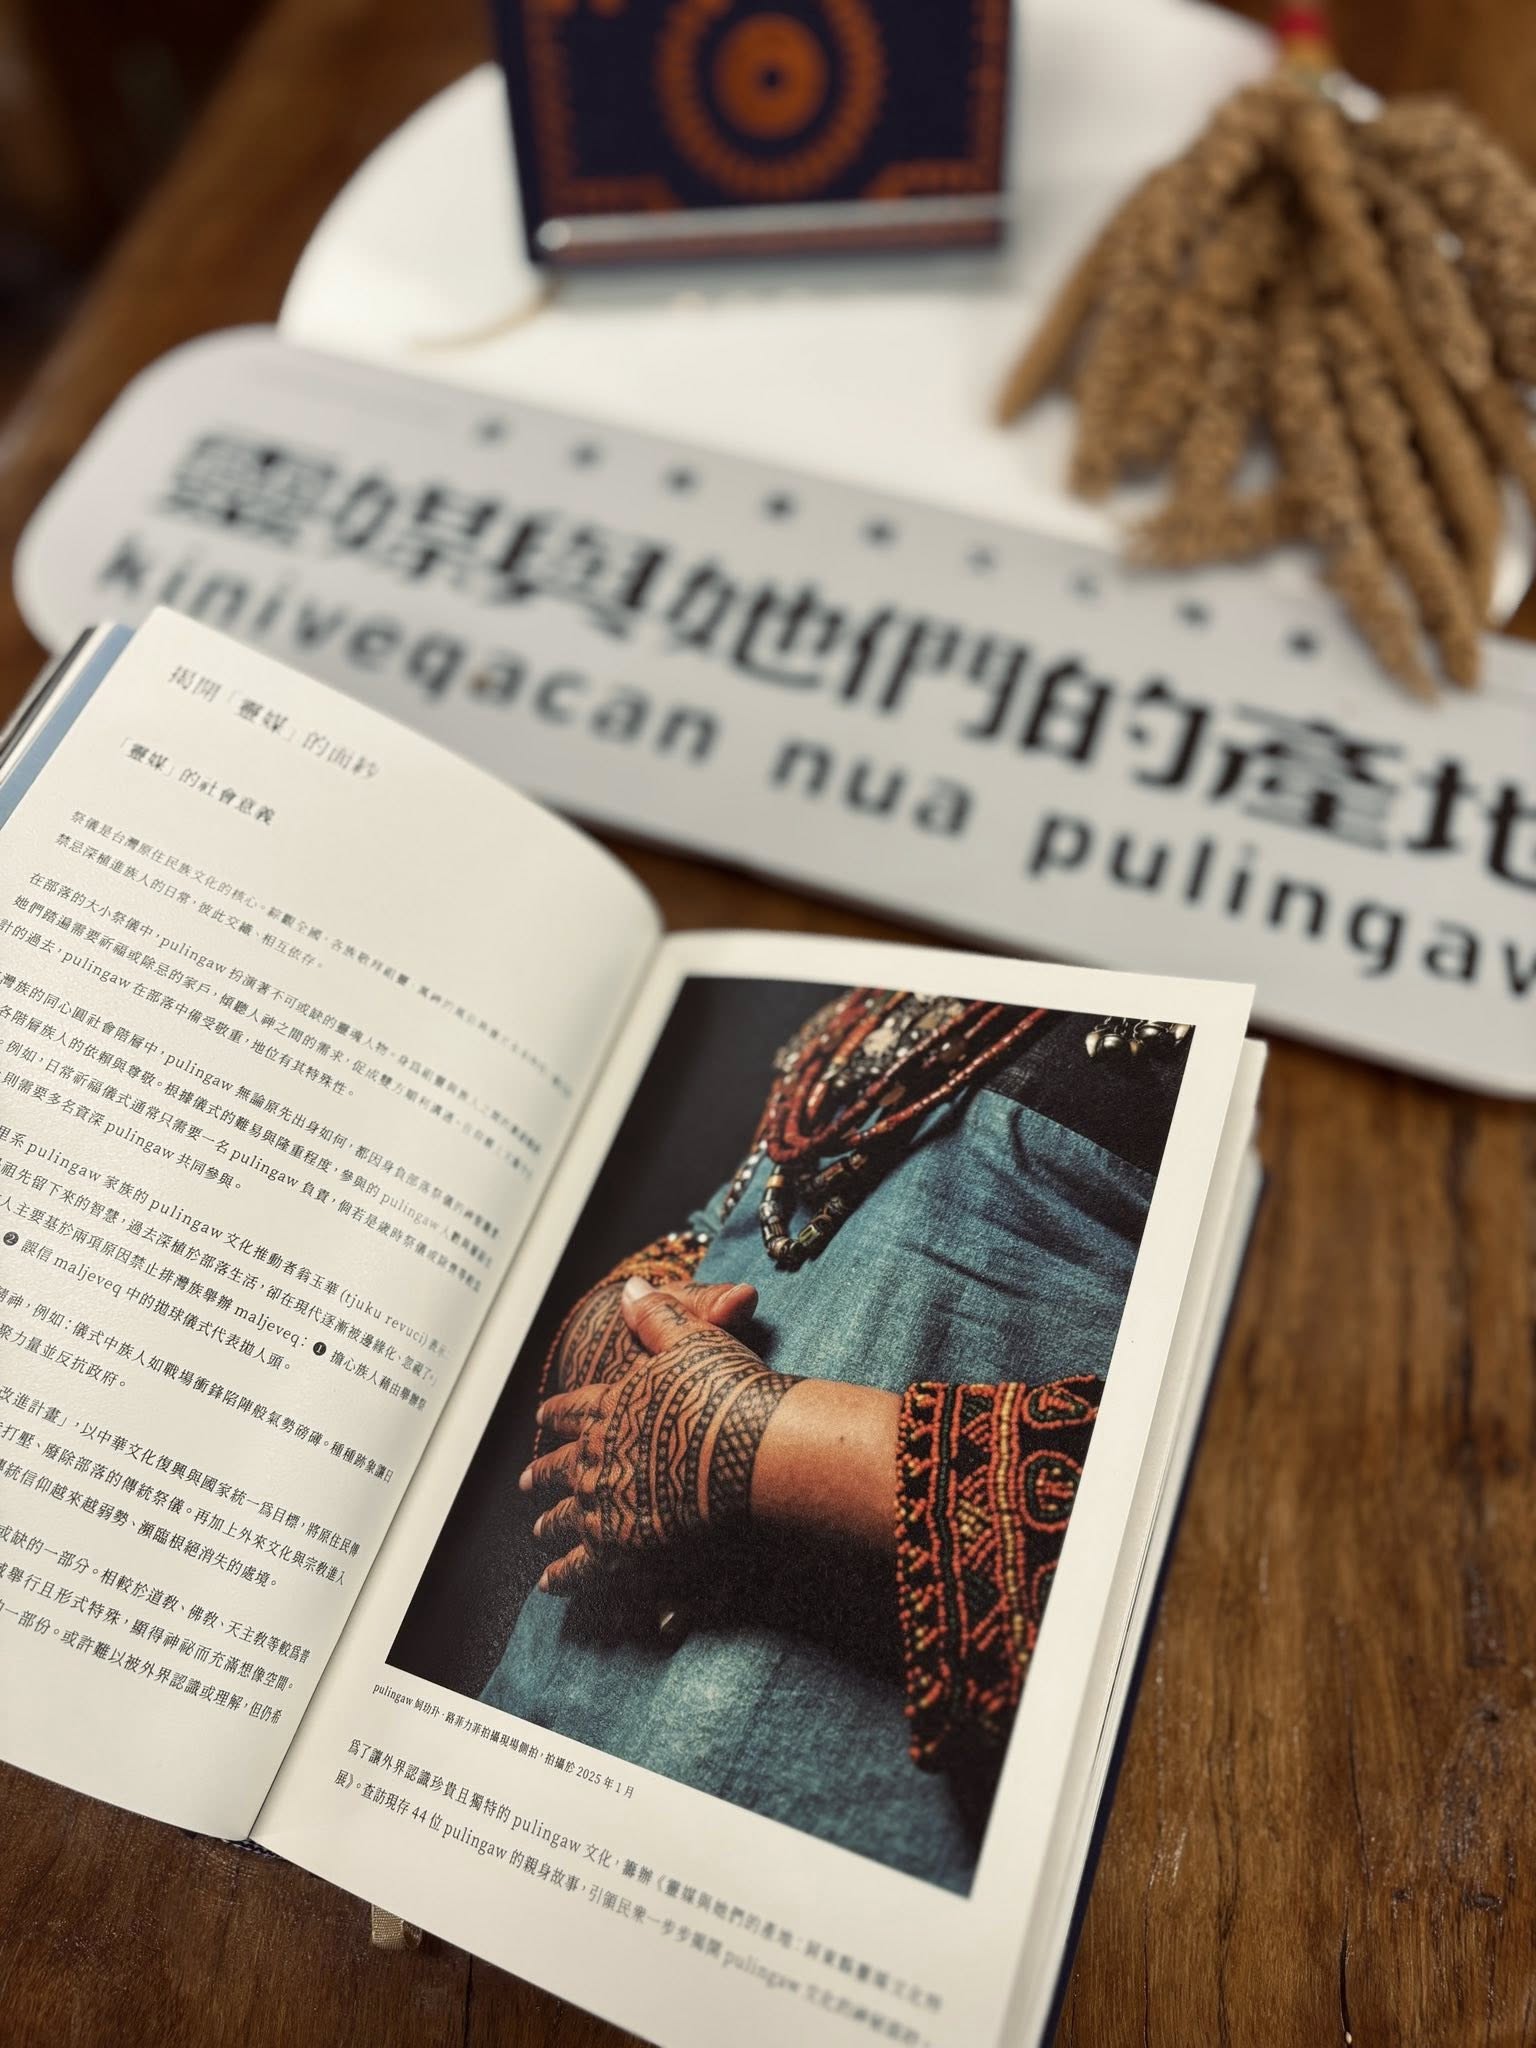 靈媒與她們的產地
kiniveqacan nua pulingaw
揭開「靈媒」的面紗
「靈媒」的社會意義
祭儀是台灣原住民族文化的核心。綜觀全國,各族敬拜祖靈
禁忌深植進族人的日常,彼此交織、相互依存。
在部落的大小祭儀中,pulingaw 扮演著不可或缺的靈魂人物。身為祖靈與族人之間的
她們踏遍需要祈福或除忌的家戶,傾聽人神之間的需求,促成雙方順利溝通。在
計的過去,pulingaw 在部落中備受敬重,地位有其特殊性。
灣族的同心圓社會階層中,pulingaw 無論原先出身如何,都因身負部落祭儀的神聖職責
各階層族人的依賴與尊敬。根據儀式的難易與隆重程度,參與的 pulingaw 人數與
。例如,日常祈福儀式通常只需要一名 pulingaw 負責,倘若是歲時祭儀或
則需要多名資深 pulingaw 共同參與。
里系 pulingaw 家族的 pulingaw 文化推動者翁玉華(tjuku revuci)表示
祖先留下來的智慧,過去深植於部落生活,卻在現代逐漸被邊緣化、忽視了。」
人主要基於兩項原因禁止排灣族舉辦 maljeveq:❶ 擔心族人藉由舉辦祭
❷ 誤信 maljeveq 中的拋球儀式代表拋人頭。
諸神,例如:儀式中族人如戰場衝鋒陷陣般氣勢磅礴。種種跡象讓日
聚力量並反抗政府。
改進計畫」,以中華文化復興與國家統一為目標,將原住民傳
打壓、廢除部落的傳統祭儀。再加上外來文化與宗教進入
傳統信仰越來越弱勢、瀕臨根絕消失的處境。
或缺的一部分。相較於道教、佛教、天主教等較為普
域舉行且形式特殊,顯得神祕而充滿想像空間。
的一部份。或許難以被外界認識或理解,但仍希
pulingaw 何幼玝・路菲力菲拍攝現場側拍,拍攝於 2025 年 1 月
為了讓外界認識珍貴且獨特的 pulingaw 文化,籌辦《靈媒與她們的產地:屏東縣靈媒文化特
展》。查訪現存 44 位 pulingaw 的親身故事,引領民眾一步步揭開 pulingaw 文化的神祕面紗。